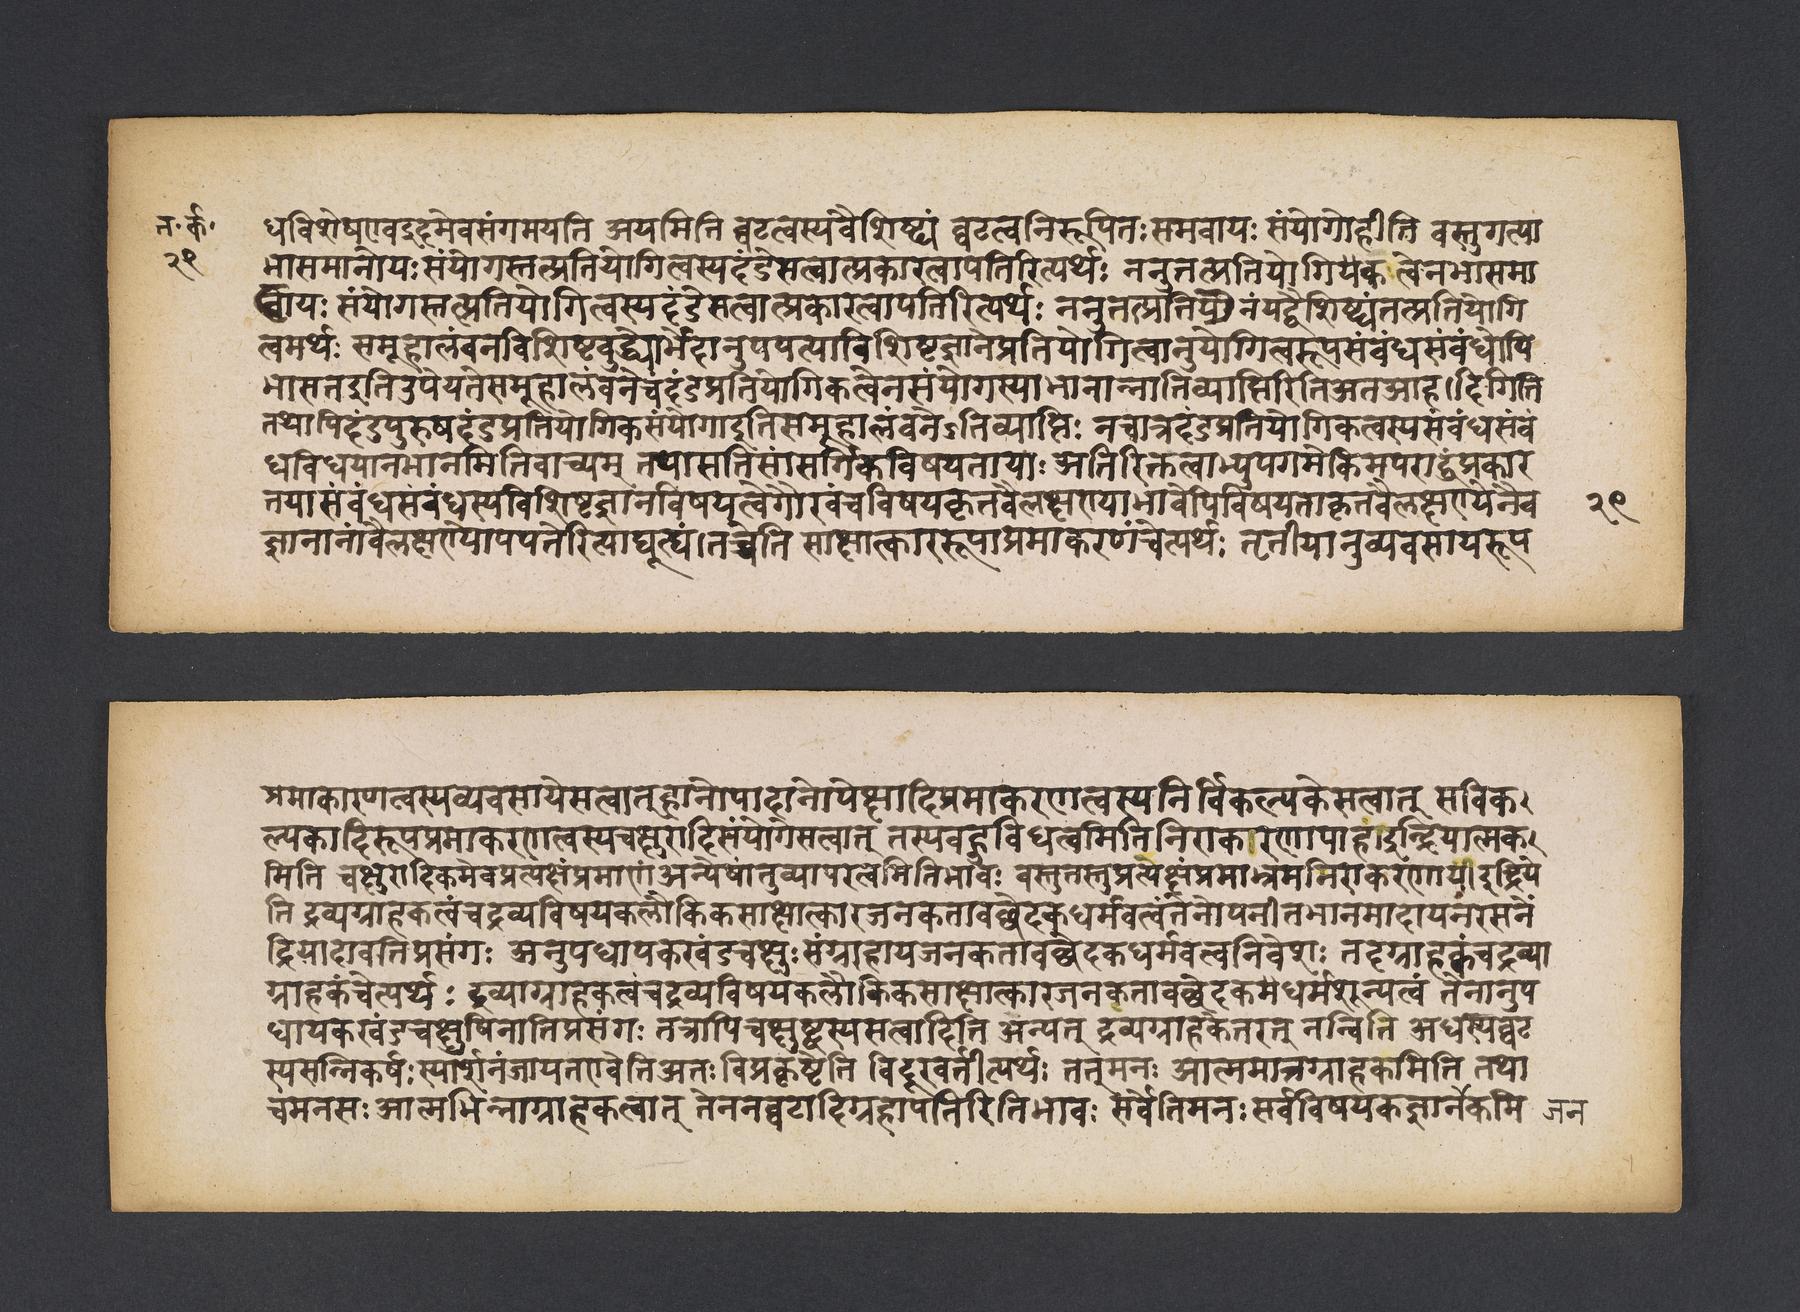 त. र्क.
२९
धविशेषएवदृढमेवसंगमयति अयमिति घटत्वस्यवैशिष्ट्यं घटत्वनिरूपितः समवायः संयोगोहीति वस्तुगत्या
भासमानोयः संयोगस्तत्प्रतियोगित्वस्यदंडेसत्वात्प्रकारत्वापतिरित्यर्थः ननुतत्प्रतियोगियक त्वेनभासमा
वायः संयोगस्तत्प्रतियोगित्वस्यदंडेसत्वात्प्रकारत्वापतिरित्यर्थः ननुतत्प्रतियो नंयद्वैशिष्ट्यंतत्प्रतियोगि
त्वमर्थः समूहालंबनविशिष्टबुद्ध्योर्भेदानुपपत्याविशिष्टज्ञानेप्रतियोगित्वानुयोगित्वरूपसंबंधसंबंधोपि
भासतइतिउपेयतेसमूहालंबनेचदंडप्रतियोगिकत्वेनसंयोगस्याभानान्नातिव्याप्तिरितिअतआह।दिगिति
तथापिदंडपुरुषदंडप्रतियोगिकसंयोगाइतिसमूहालंबनेऽतिव्याप्तिः नचात्रदंडप्रतियोगिकत्वस्यसंबंधसंबं
धविधयानभानमितिवाच्यम् तथासतिसांसर्गिकविषयतायाः अतिरिक्तत्वाभ्युपगमेकिमपराद्धंप्रकार
तयासंबंधसंबंधस्यविशिष्टज्ञानविषयत्वेगौरवंचविषयकृतवैलक्षण्याभावेपिविषयताकृतवैलक्षण्येनैव
२९
ज्ञानानांवैलक्षण्योपपत्तेरित्याद्यूह्यं।तच्चेति साक्षात्काररूपाप्रमाकरणंचेत्यर्थः तृतीयानुव्यवसायरूप
प्रमाकारणत्वस्यव्यवसायेसत्वात्हानोपादानोपेक्षादिप्रमाकरणत्वस्यनिर्विकल्पकेसत्वात् सविक
ल्पकादिरूपप्रमाकरणत्वस्यचक्षुरादिसंयोगेसत्वात् तस्यबहुविधत्वमितिनिराकारणापाह।इन्द्रियात्मक
मिति चक्षुरादिकमेवप्रत्यक्षंप्रमाणंअन्येषांतुव्यापारत्वमितिभावः वस्तुतस्तुप्रत्यक्षंप्रमाभ्रमनिराकरणंणयीइंद्रिये
ति द्रव्यग्राहकत्वंचद्रव्यविषयकलौकिकसाक्षात्कारजनकतावच्छेदकधर्मवत्वंतेनोपनीतभानमादायनरसने
द्रियादावतिप्रसंगः अनुपधापकेखंडचक्षुःसंग्राहायजनकतावच्छेदकधर्मवत्वनिवेशः तदग्राहकंचद्रव्या
ग्राहकंचेत्यर्थः द्रव्याग्राहकत्वंचद्रव्यविषयकलौकिकसाक्षात्कारजनकतावच्छेदकमधर्मशून्यत्वं तेनानुप
धायकखंडचक्षुषिनातिप्रसंगः तत्रापिचक्षुष्ट्वस्यसत्वादिति अन्यत् द्रव्यग्राहकेतरत् नन्विति अधस्थघट
स्यसन्निकर्षःस्पार्शनंजायतएवेतिअतः विप्रकृष्टेति विदूरवर्तीत्यर्थः ततुमनः आत्ममात्रग्राहकमिति तथा
चमनसः आत्मभिन्नाग्राहकत्वात् तेननघटादिग्रहापतिरितिभावः सर्वेतिमनःसर्वविषयकज्ञानेकमि जन